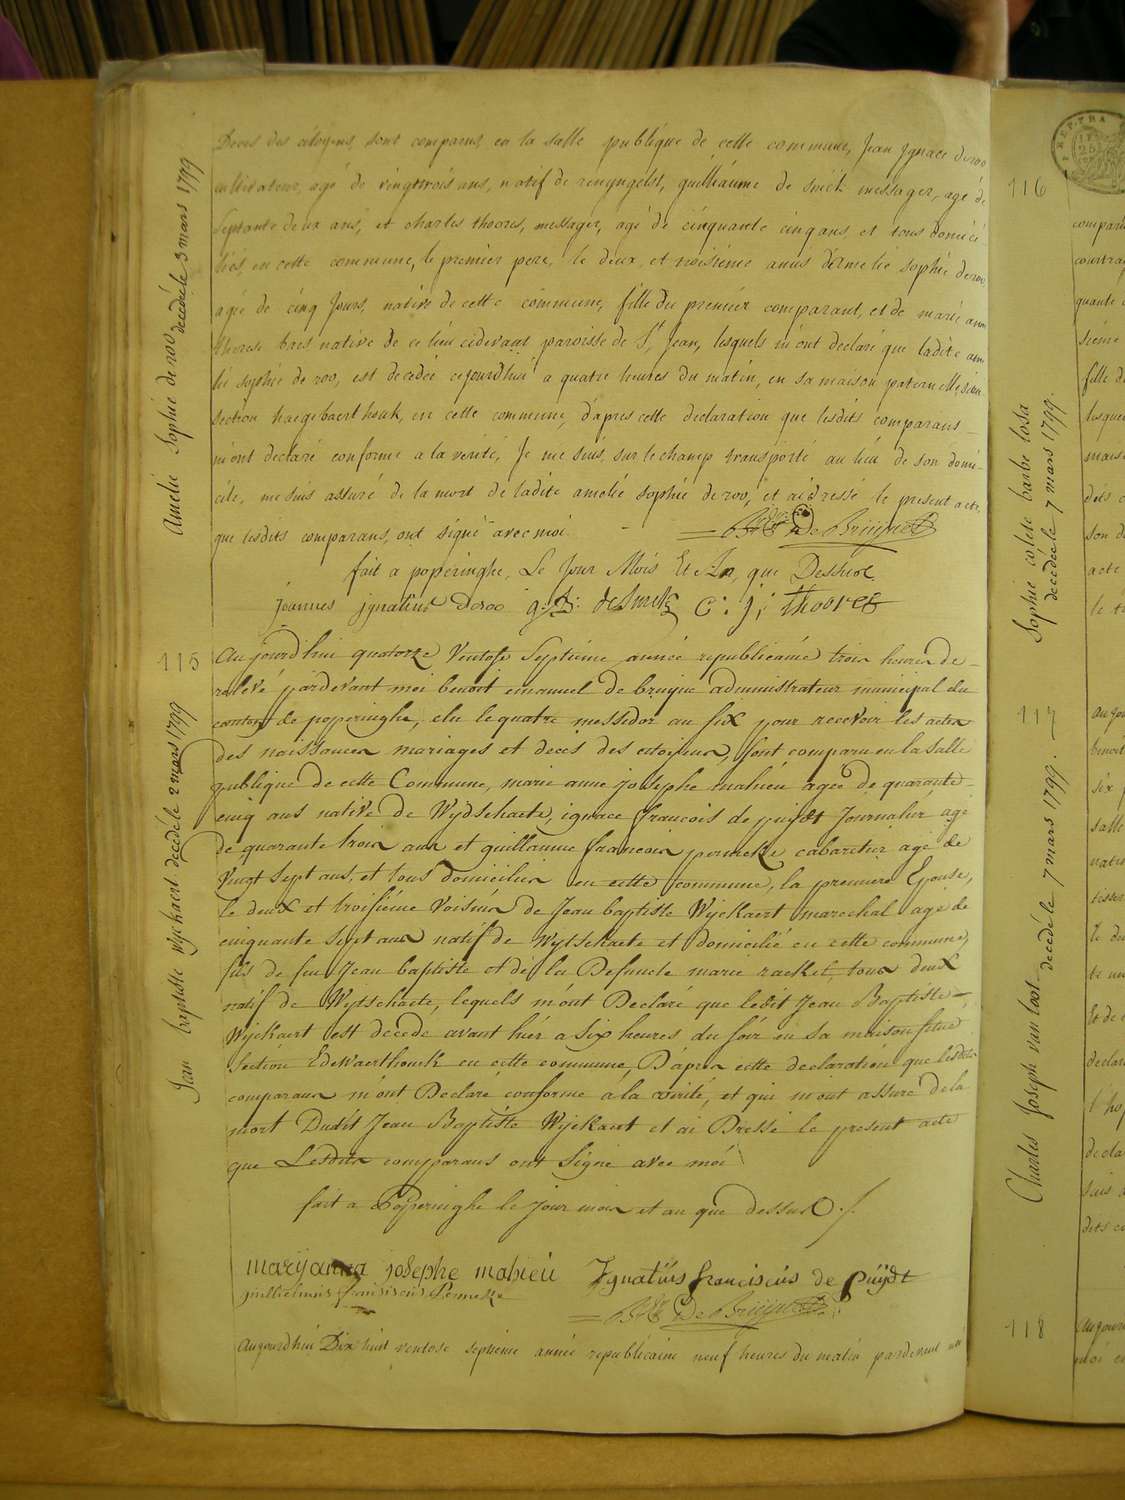 Deces des citoyens, sont comparus en la salle publique de cette commune, Jean Ignace deroo
cultivateur, agé de vingttrois ans, natif de renynghelst, guilleaume de smidt messager, agé de
Septante deux ans, et charles thoores, messager, agé de cinquante cinq ans, et tous domici-
liés, en cette commune, le premier pere, le deux, et troisieme amis d'amelie sophie deroo
agée de cinq Jours, native de cette commune, fille du premier comparant, et de marie anne
therese baes native de ce lieu cidevant paroisse de St. Jean, lesquels m'ont declaré que ladite ame
lie sophie de roo, est decedée cejourdhui a quatre heures du matin, en sa maison paternelle
section haegebaerthouk, en cette commune, d'apres cette declaration que lesdits comparans
m'ont declaré conforme a la verité, Je me suis, sur le champ transporté au lieu de son domi-
cile, me suis assuré de la mort de ladite amelie sophie de roo, et ai dressé le present acte
que lesdits comparans, ont signé avec moi.
De Bruyne
fait a poperinghe, Le Jour Mois Et An, que Dessus
joannes ignatius deroo g: de smidt c: j: thoores
Amelie Sophie de roo decedée le 3 mars 1799
115
Aujourd'hui quatorze Ventose Septieme année republicaine trois heures de-
relevé pardevant moi benoit emanuel de bruyne administrateur municipal du
canton de poperinghe, elu le quatre messidor an six pour recevoir les actes
des naissances mariages et deces des citoyens, sont comparu en la salle
publique de cette Commune, marie anne josephe mahieu agee de quarante-
cinq ans native de Wydschaete, ignace francois de puydt Journalier agé
de quarante trois ans et guillaume francois permeke cabaretier agé de
vingt sept ans, et tous domicilies en cette commune, la premiere Epouse,
le deux et troisieme voisins de Jean baptiste Wyckaert marechal agé de
cinquante sept ans natif de Wytschaete et domicilié en cette commune,
fils de feu Jean baptiste et de la Defuncte marie racket, tous deux
natif de Wijtschaete, lequels m'ont Declaré que ledit Jean Baptiste
Wyckaert est decede avant hier a six heures du soir en sa maison situé
Section Edewaerthouck en cette commune, D'apres cette declaration que lesdits
comparans m'ont Declaré conforme à la verité, et qui m'ont assuré de la
mort Dudit Jean Baptiste Wyckaert et ai Dressé le present acte
que Lesdits comparans ont Signé avec moi
fait a Poperinghe le jour mois et an que dessus
maryanna josephe mahieu Ignatius franciscus de puydt
guillielmus franciscus Permeke
De Bruyne
Jean baptiste wyckaert decédé le 2 mars 1799
Aujourdhui Dix huit ventose septieme année republicaine neuf heures du matin pardevant moi
116
Sophie colete barbe losa
decédée le 7 mars 1799.
117
Charles Joseph van loot. decédé le 7 mars 1799.
118